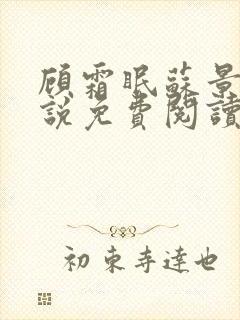 顾霜眠蘇景
說免費閱讀
初東寺達也